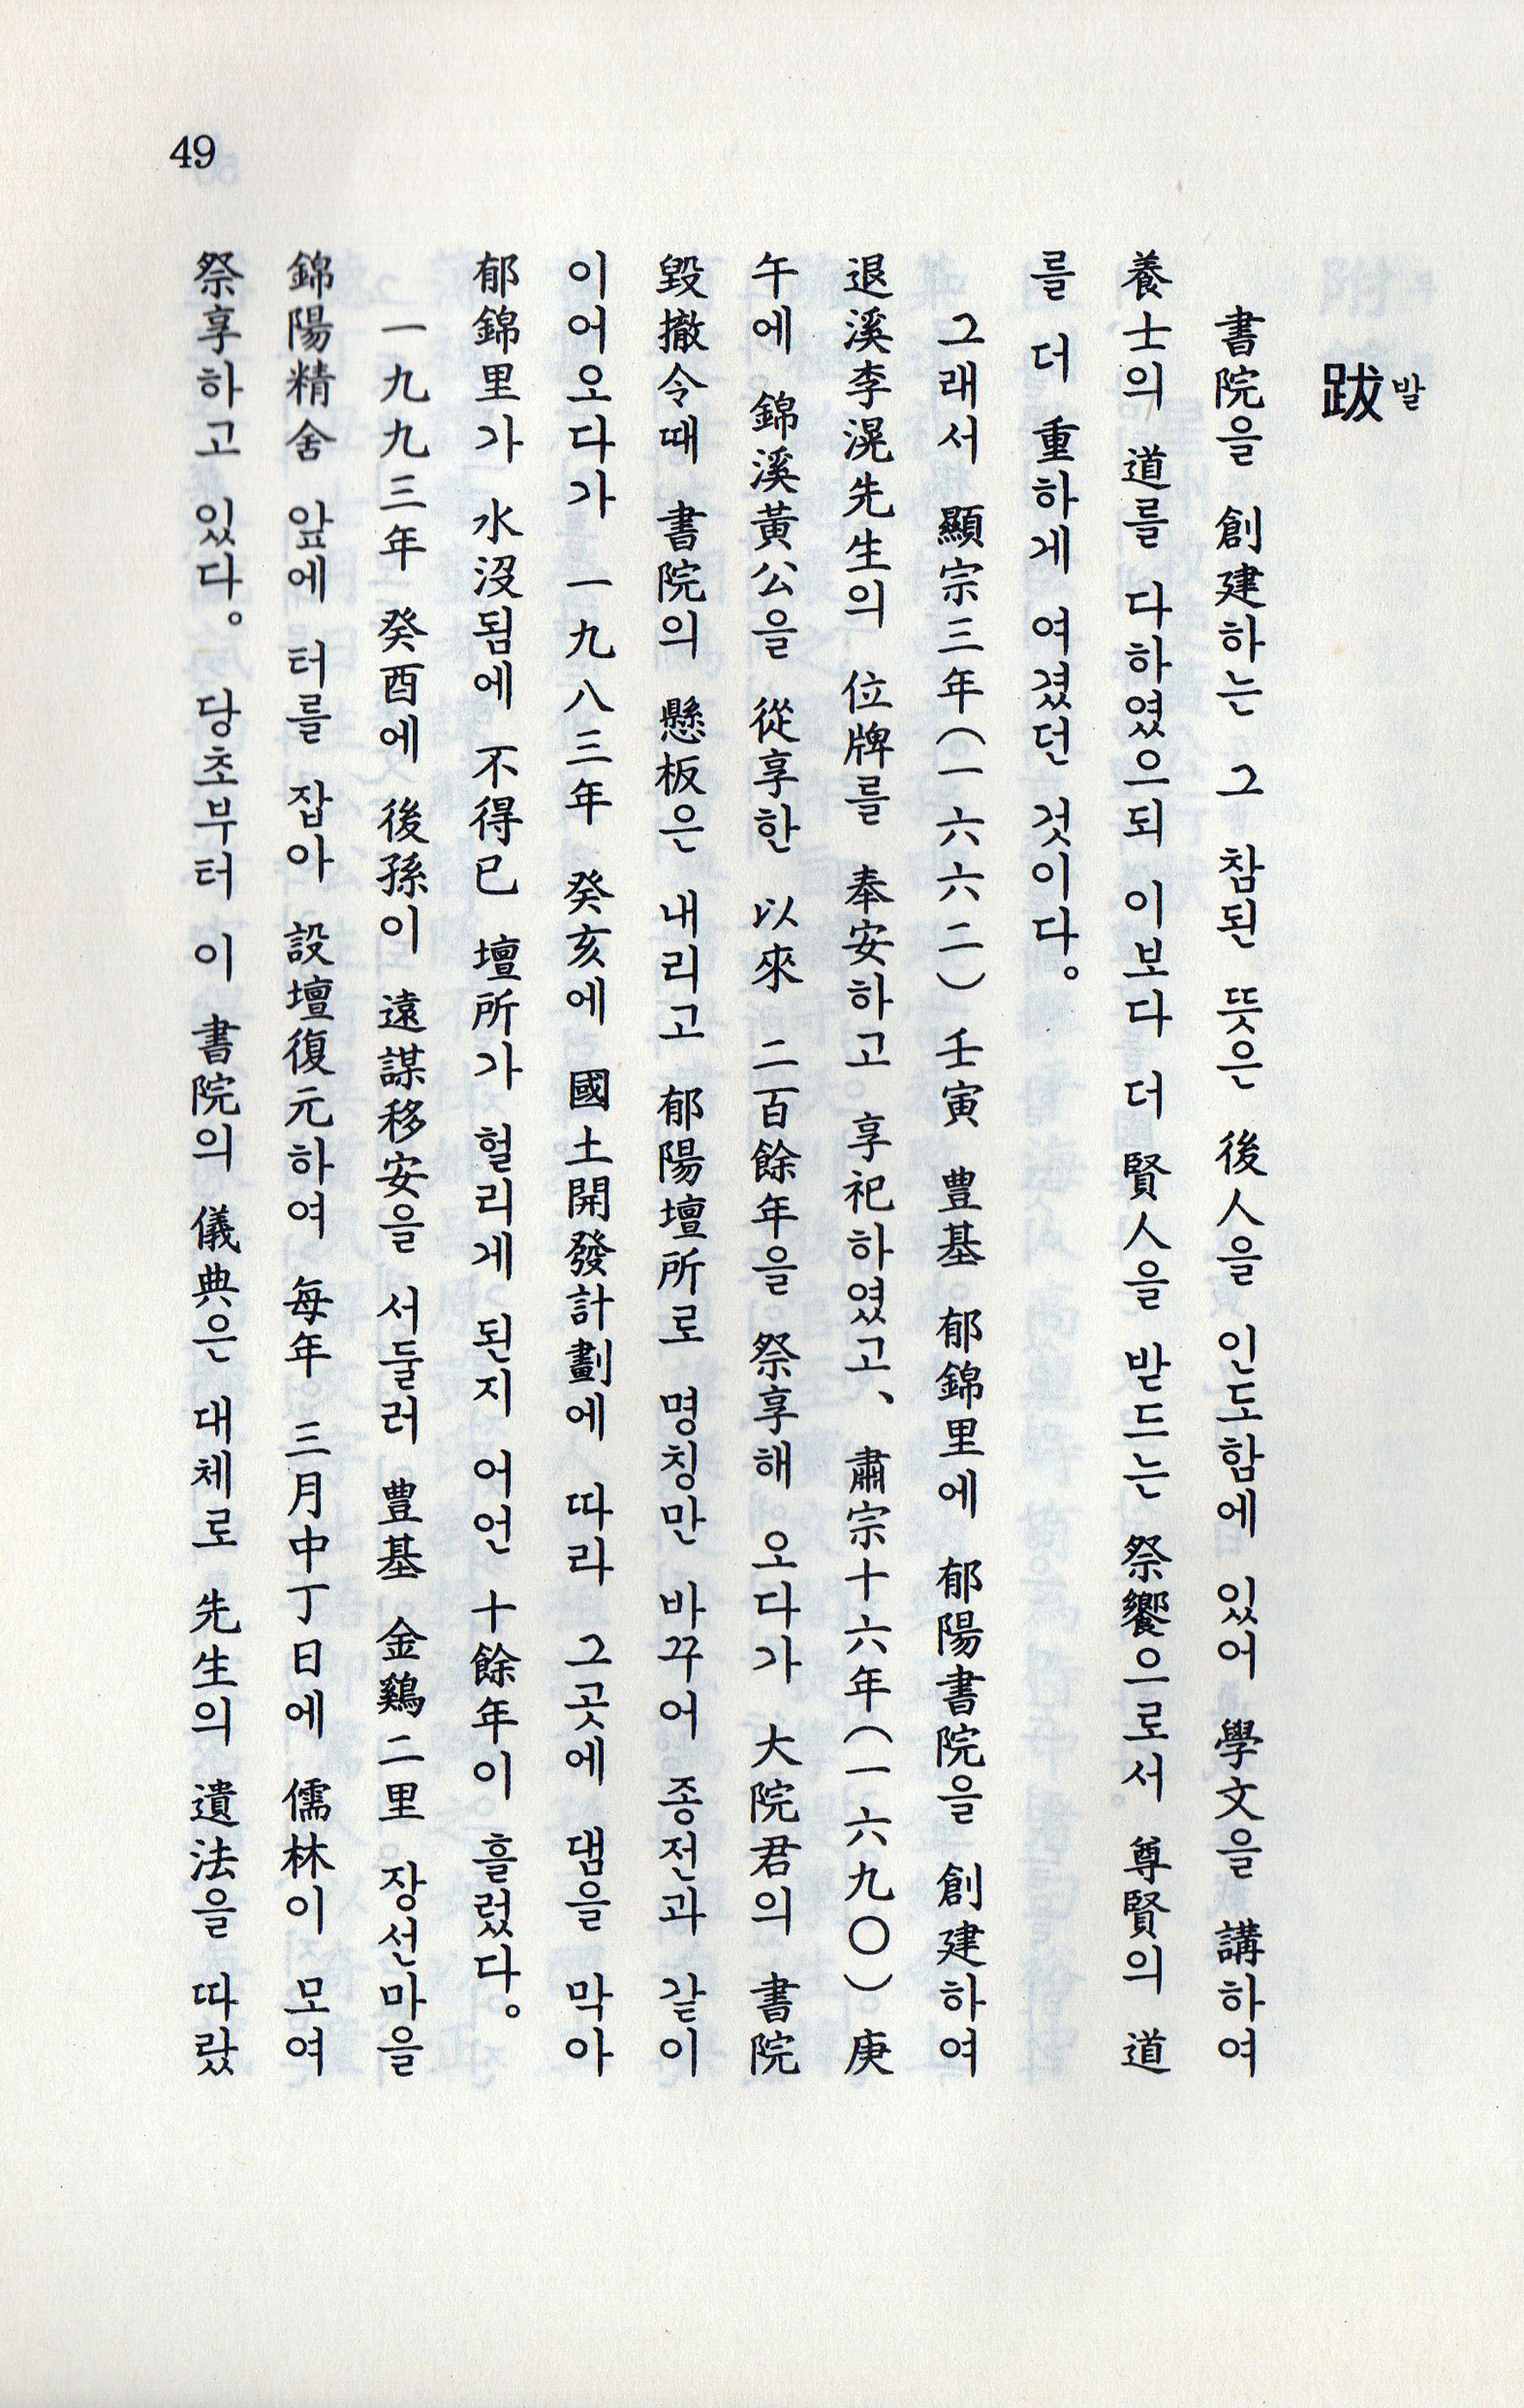 跋 발
書院을 創建하는 그 참된 뜻은 後人을 인도함에 있어 學文을 講하여
養士의 道를 다하였으되 이보다 더 賢人을 받드는 祭饗으로서 尊賢의 道
를 더 重하게 여겼던 것이다。
그래서 顯宗三年(一六六二) 壬寅 豊基 郁錦里에 郁陽書院을 創建하여
退溪李滉先生의 位牌를 奉安하고 享祀하였고、 肅宗十六年(一六九〇) 庚
午에 錦溪黃公을 從享한 以來 二百餘年을 祭享해 오다가 大院君의 書院
毀撤令때 書院의 懸板은 내리고 郁陽壇所로 명칭만 바꾸어 종전과 같이
이어오다가 一九八三年 癸亥에 國土開發計劃에 따라 그곳에 댐을 막아
郁錦里가 水沒됨에 不得已 壇所가 헐리게 된지 어언 十餘年이 흘렀다。
一九九三年 癸酉에 後孫이 遠謀移安을 서둘러 豊基 金鷄二里 장선마을
錦陽精舍 앞에 터를 잡아 設壇復元하여 每年 三月中丁日에 儒林이 모여
祭享하고 있다。 당초부터 이 書院의 儀典은 대체로 先生의 遺法을 따랐
49